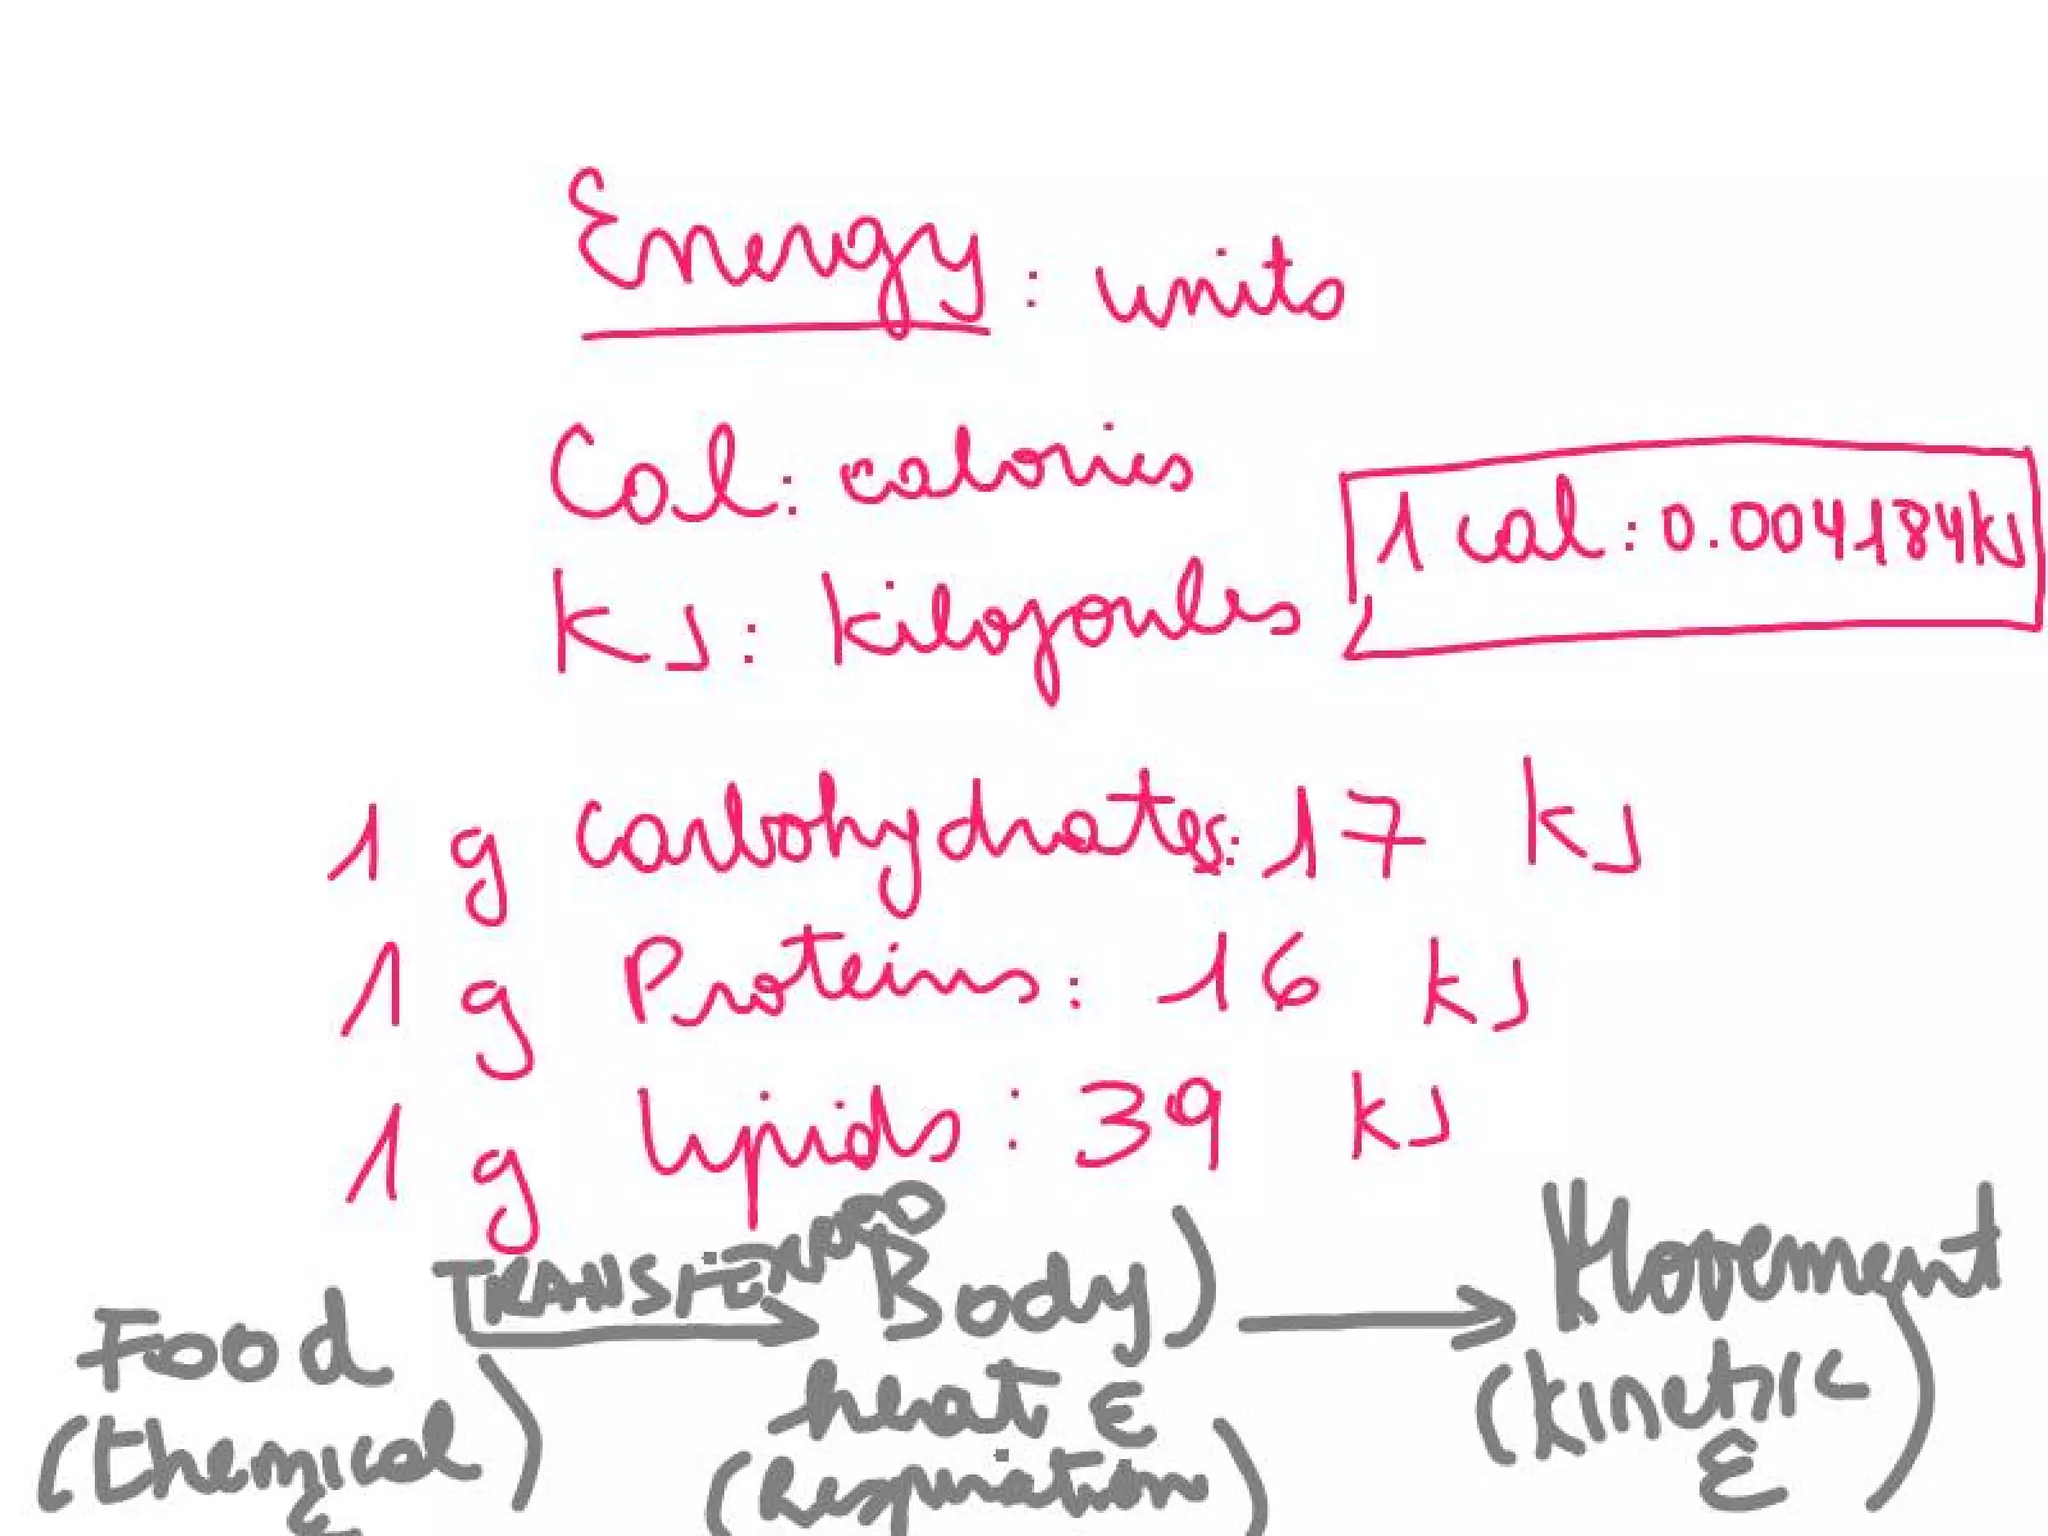 Energy : units
Cal: calories
1 cal : 0.004184kJ
KJ: kilojoules
1 g carbohydrates: 17 kJ
1 g Proteins: 16 kJ
1 g lipids: 39 kJ
Food TRANSFERRED Body) Movement
(chemical E) heat E (kinetic E)
(Respiration)